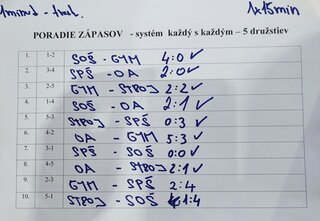 1x15min
PORADIE ZÁPASOV - systém každý s každým – 5 družstiev
1. 1-2 SOŠ - GYM 4:0 ✓
2. 3-4 SPŠ - OA 2:0 ✓
3. 2-5 GYM - STROJ 2:2 ✓
4. 1-4 SOŠ - OA 2:1 ✓
5. 5-3 STROJ - SPŠ 0:3 ✓
6. 4-2 OA - GYM 5:3 ✓
7. 3-1 SPŠ - SOŠ 0:0 ✓
8. 4-5 OA - STROJ 2:1 ✓
9. 2-3 GYM - SPŠ 2:4
10. 5-1 STROJ - SOŠ 1:4